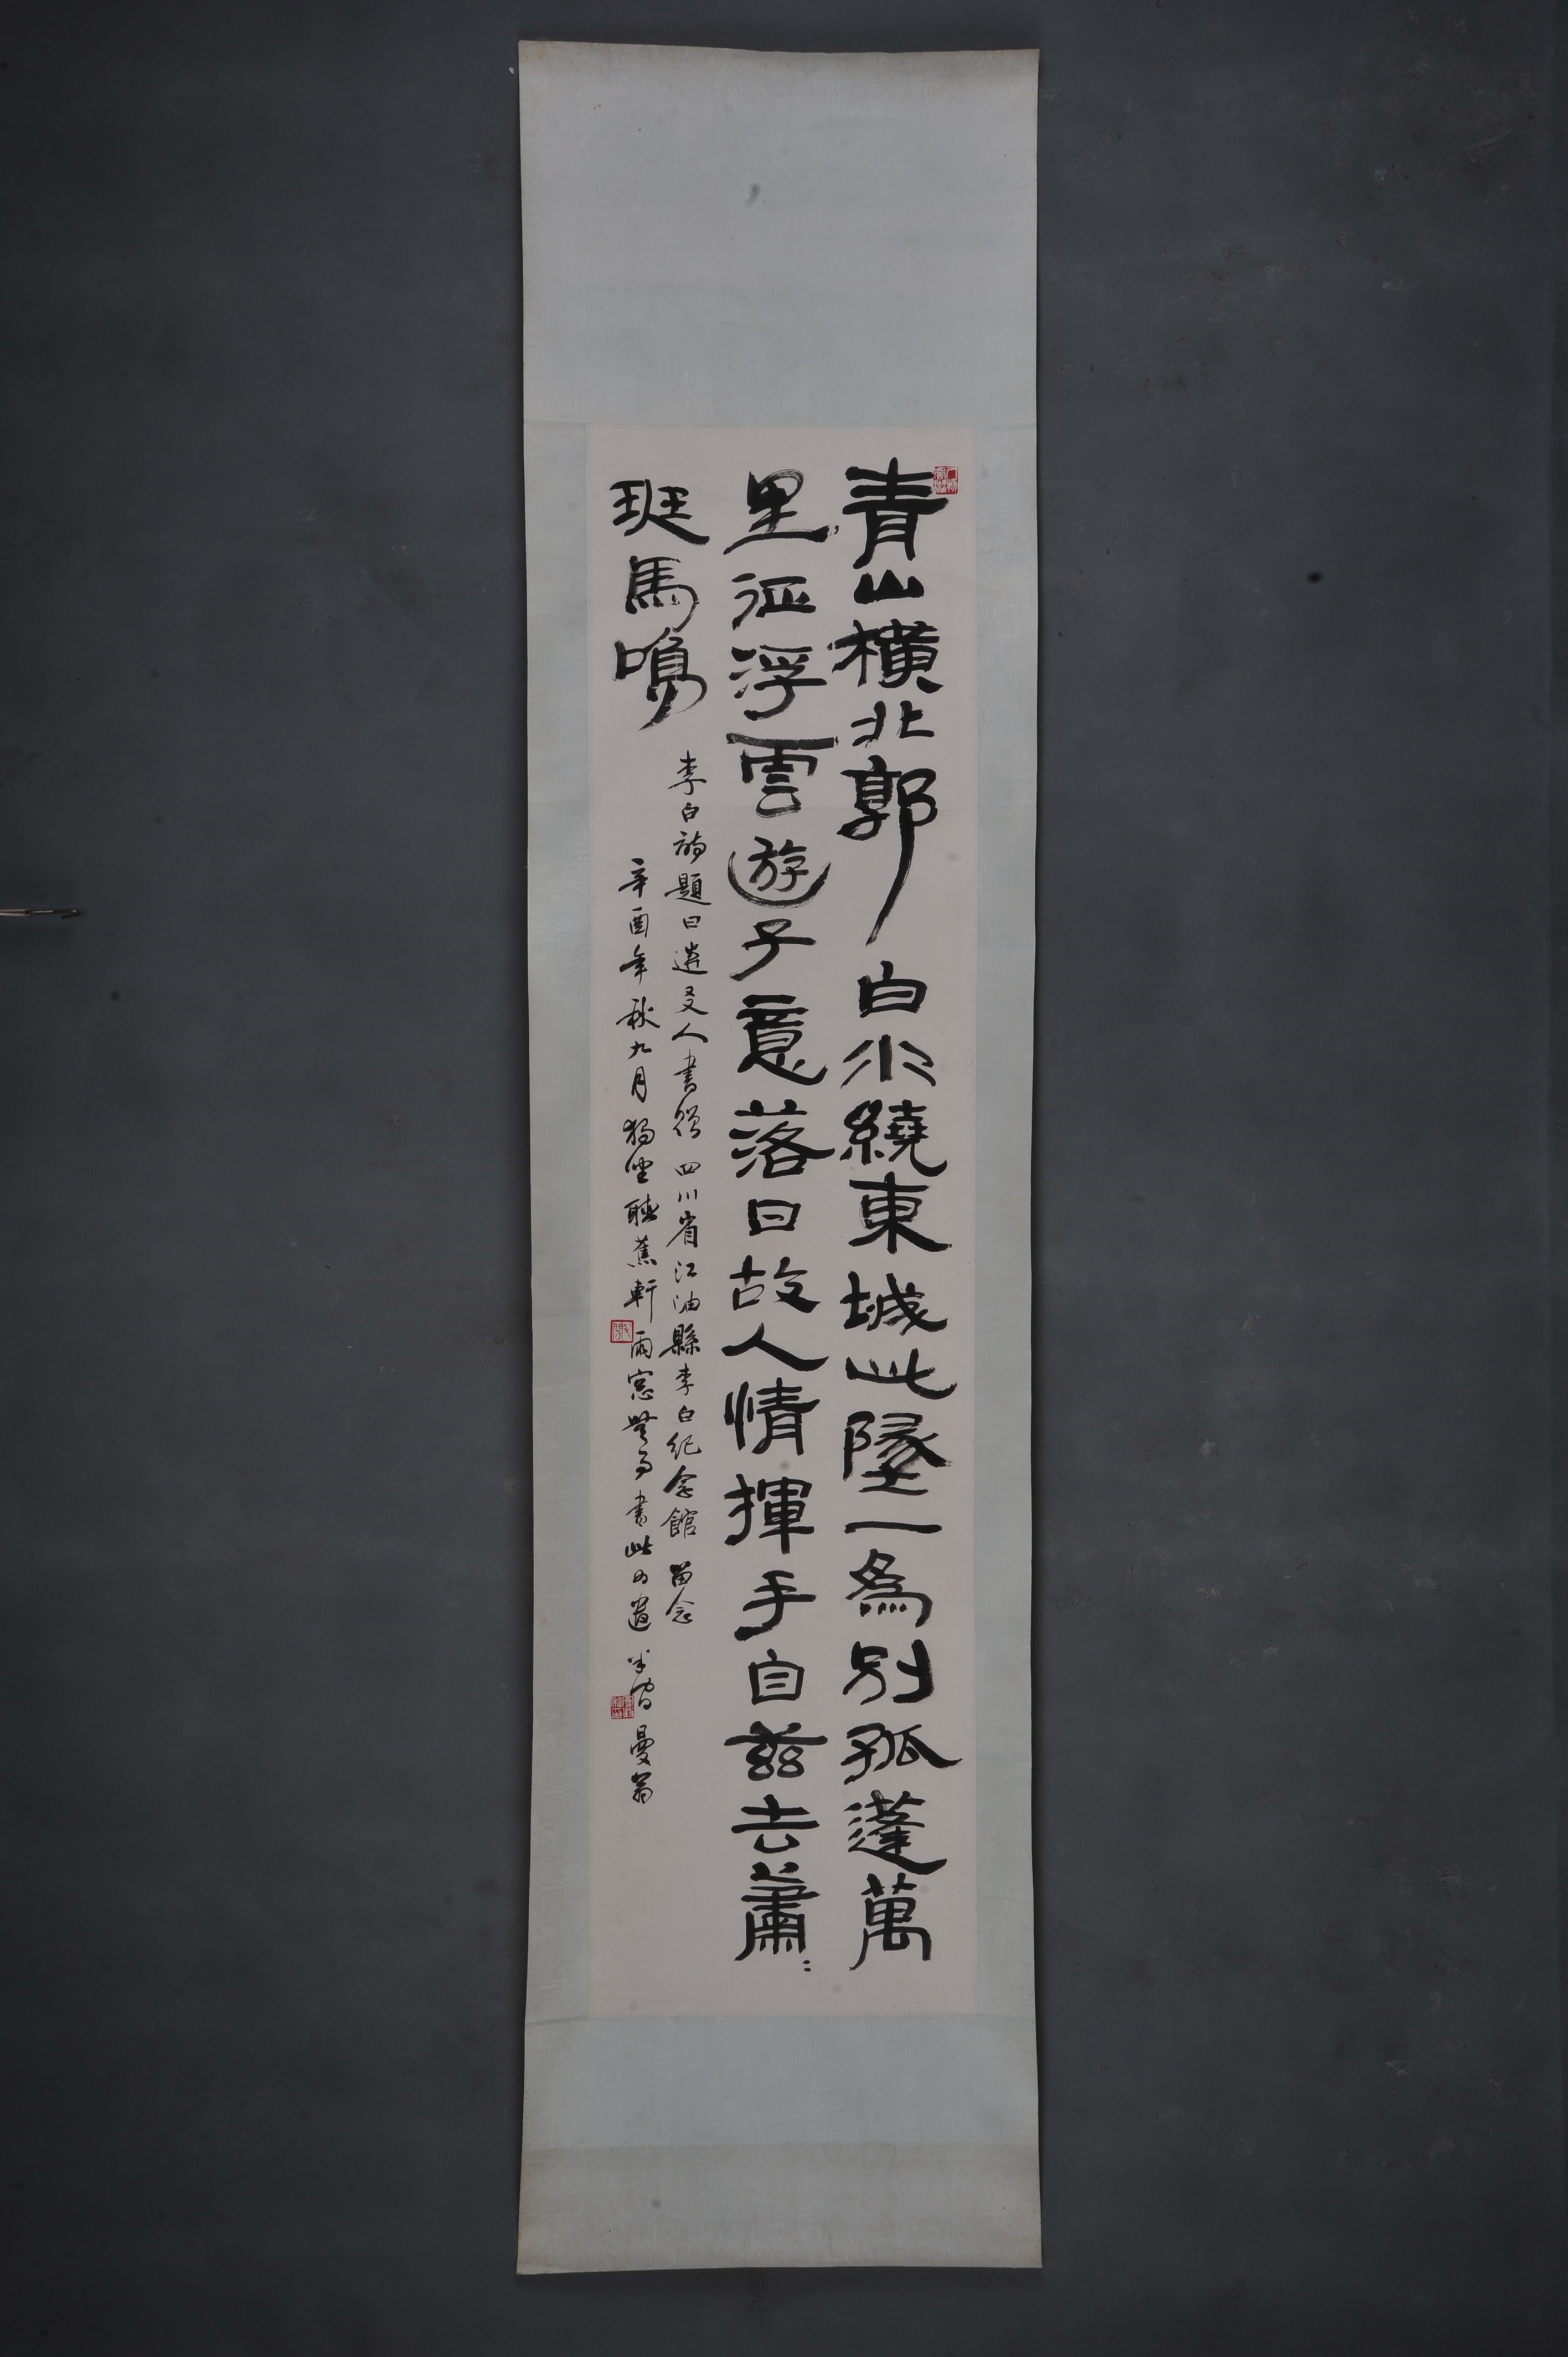 青山橫北郭白水繞東城此墜一為別孤蓬萬
里征浮雲遊子意落日故人情揮手自茲去蕭〻
班馬鳴
李白詩題曰送友人書貽四川省江油縣李白紀念館留念
辛酉年秋九月獨坐聽蕉軒雨窓無事書此以遣 曼翁